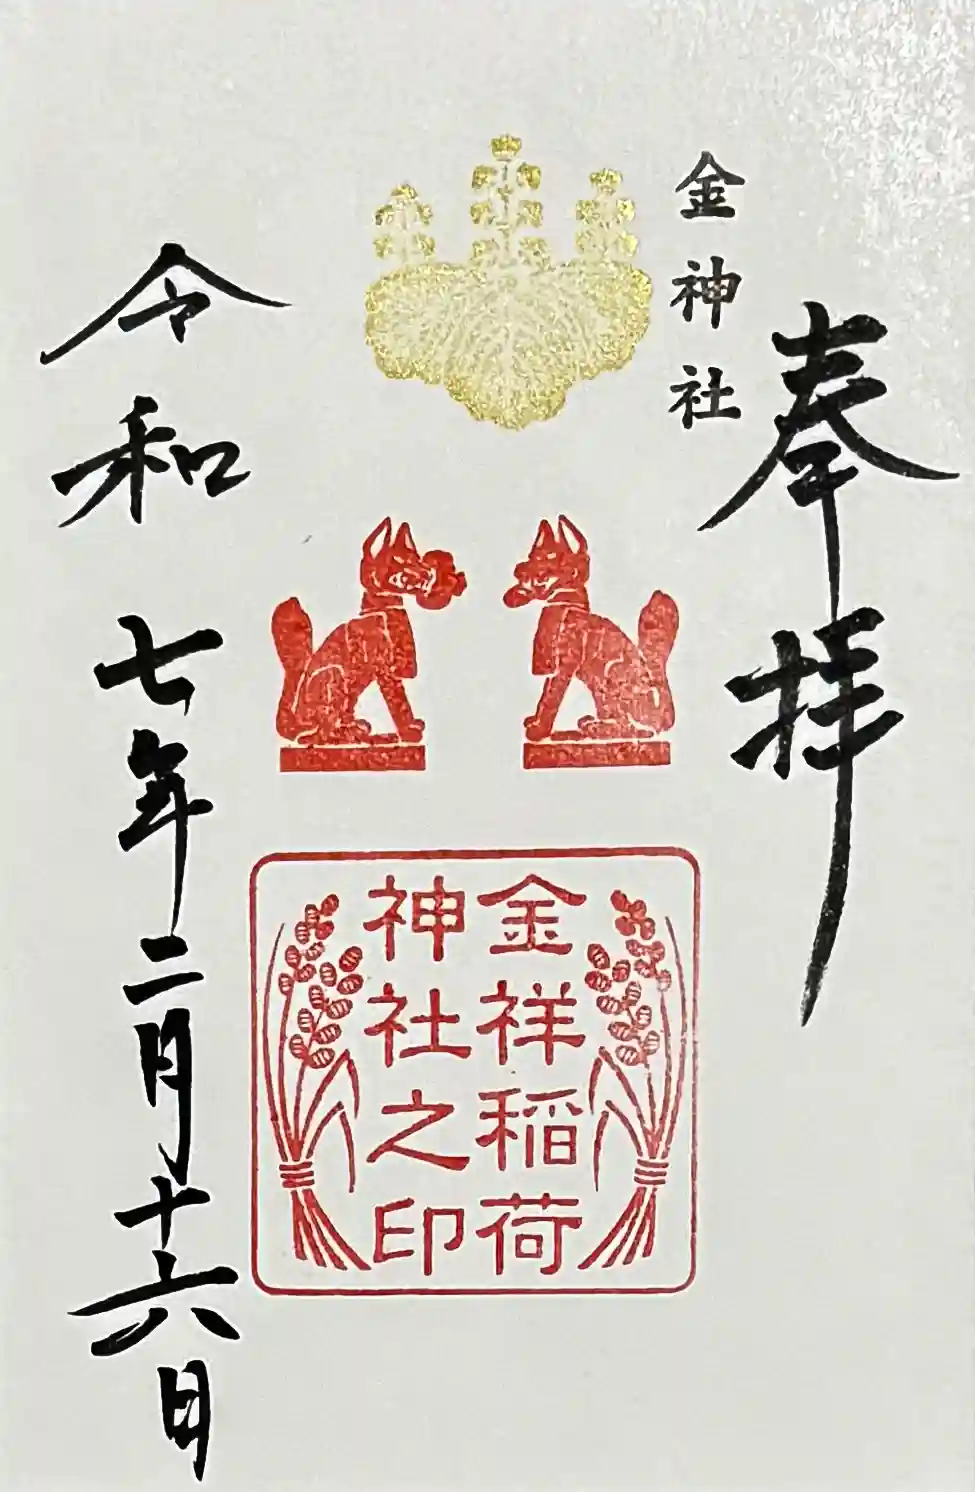 奉拝
金神社
金祥稲荷
神社之印
令和七年二月十六日